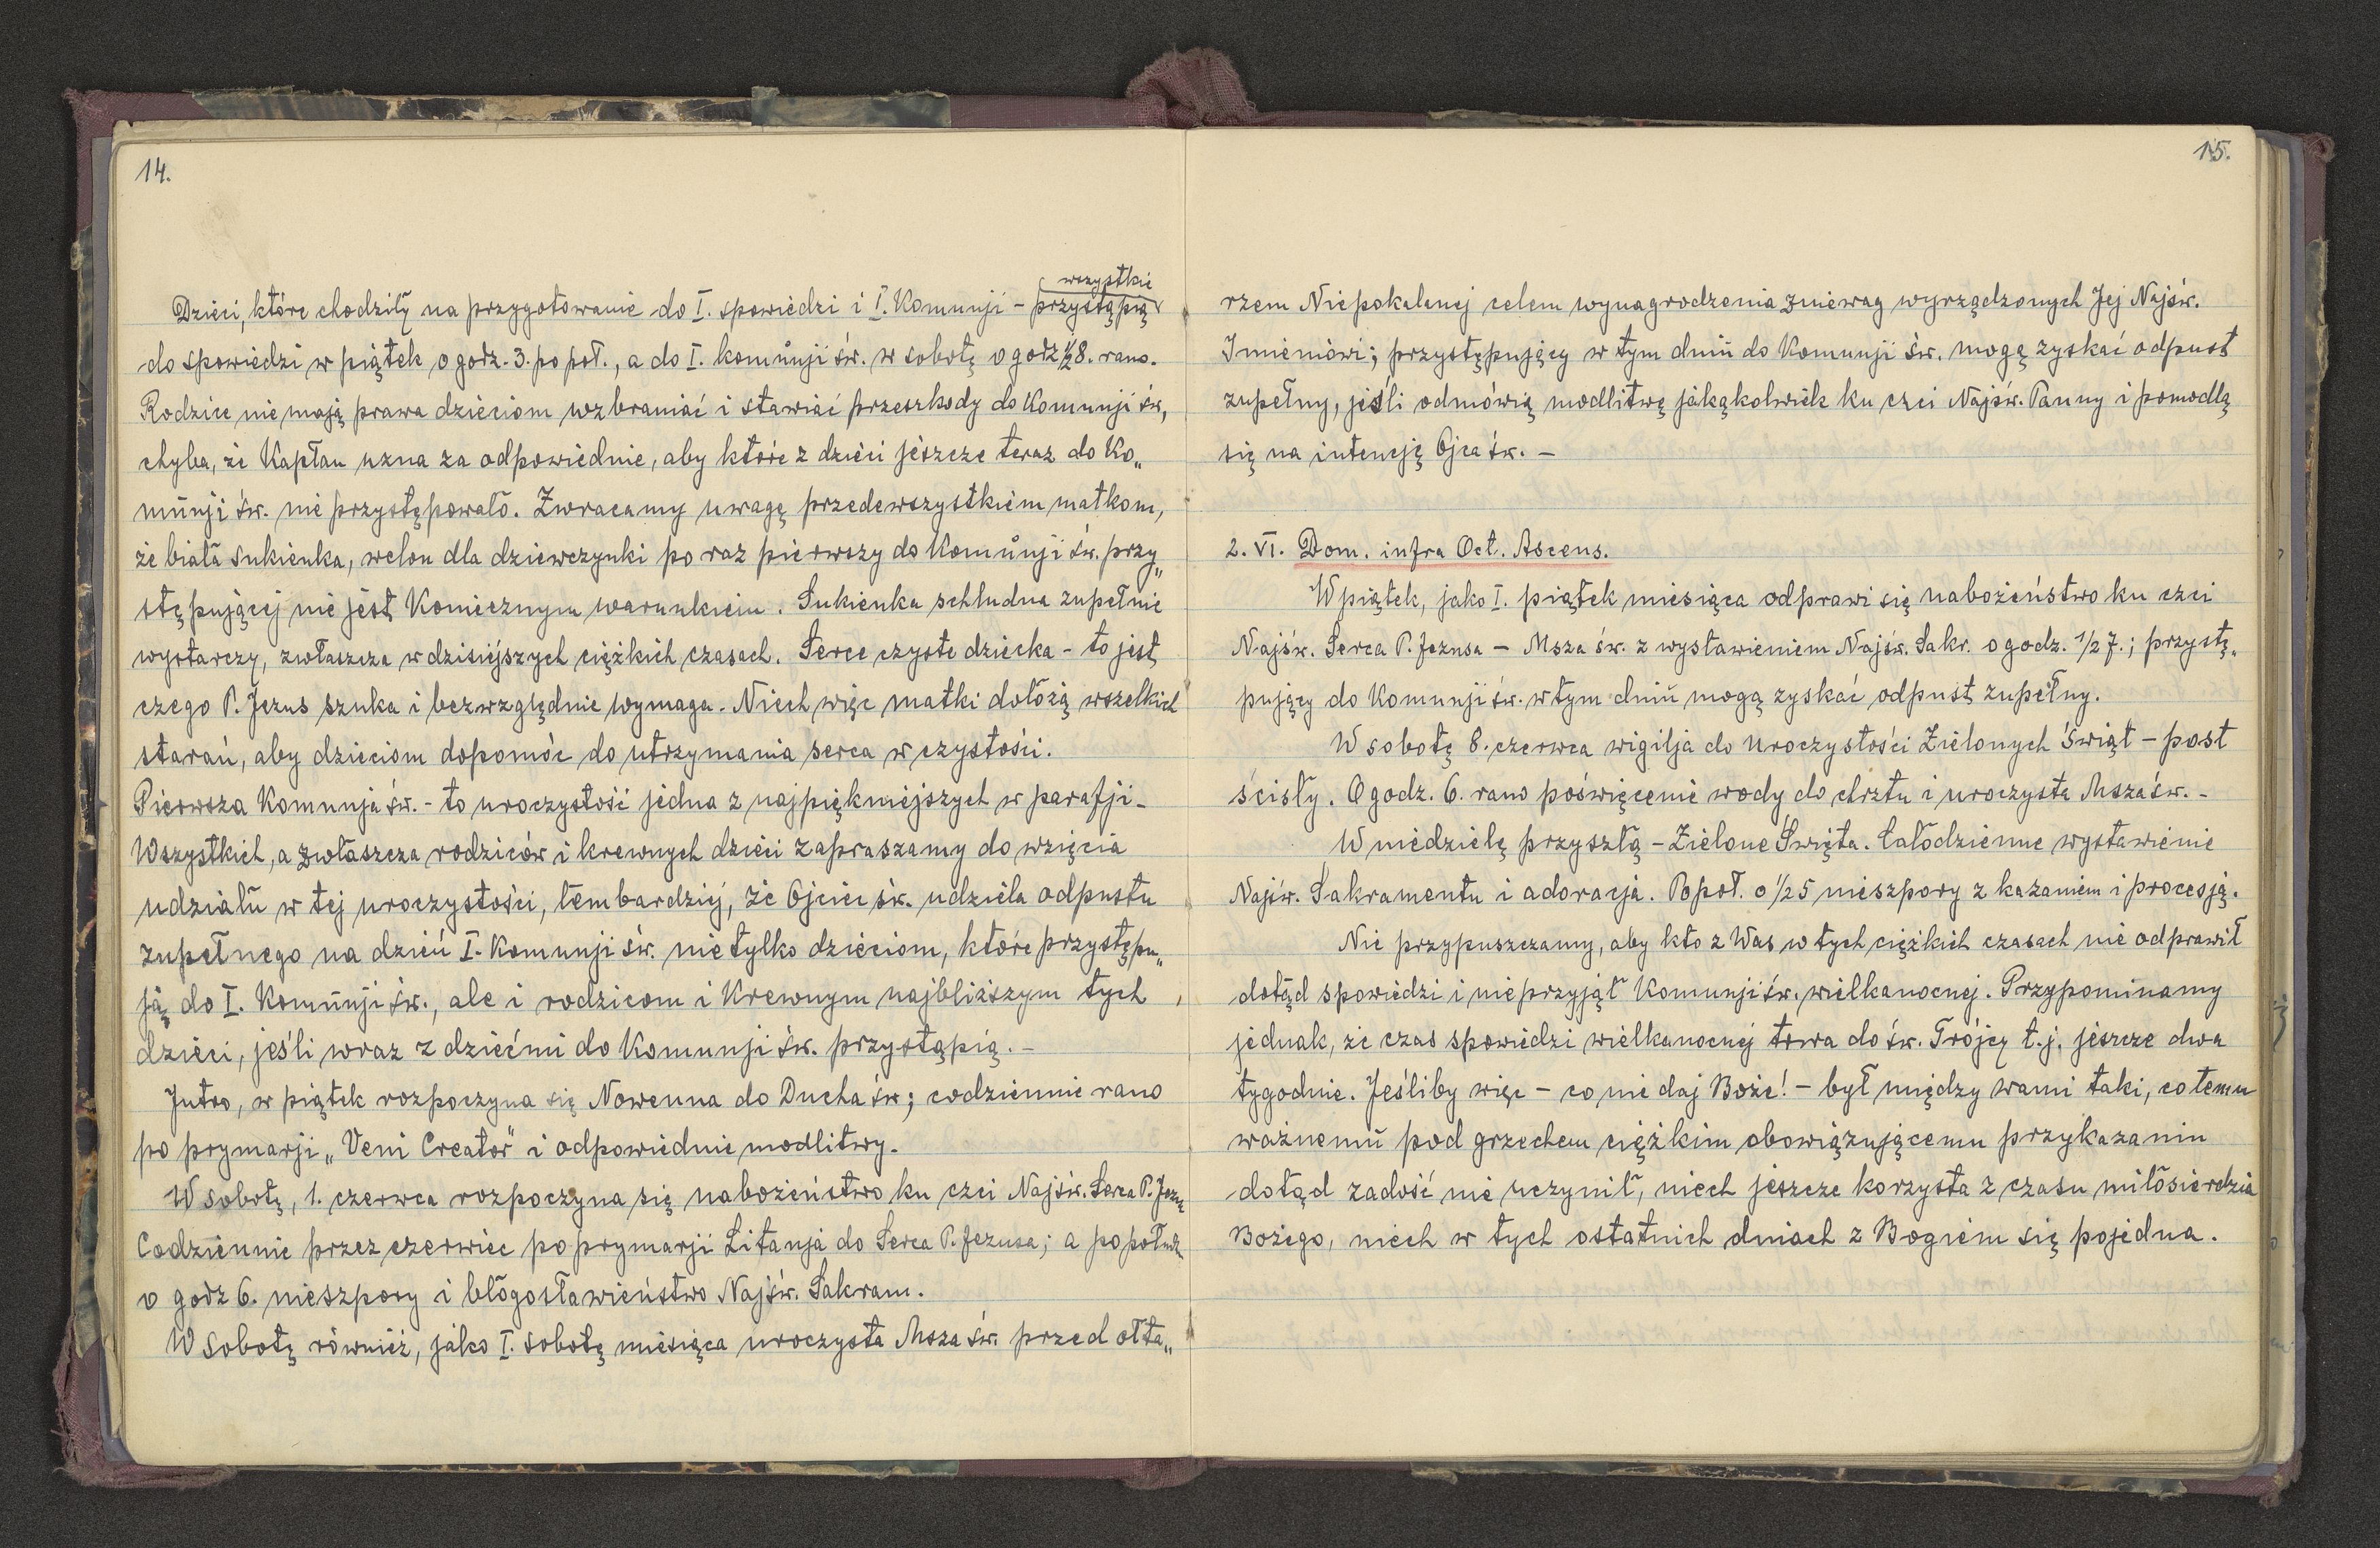 14.
wszystkie
Dzieci, które chodziły na przygotowanie do I. spowiedzi i I. Komunji - przystąpią
do spowiedzi w piątek o godz. 3. po poł., a do I. komunji św. w sobotę o godz 1/2 8. rano.
Rodzice nie mają prawa dzieciom wzbraniać i stawiać przeszkody do Komunji św,
chyba, że Kapłan uzna za odpowiednie, aby które z dzieci jeszcze teraz do Ko„
munji św. nie przystępowało. Zwracamy uwagę przedewszystkiem matkom,
że biała sukienka, welon dla dziewczynki po raz pierwszy do Komunji św. przy„
stępującej nie jest Koniecznym warunkiem. Sukienka schludna zupełnie
wystarczy, zwłaszcza w dzisiejszych ciężkich czasach. Serce czyste dziecka - to jest,
czego P. Jezus szuka i bezwzględnie wymaga. Niech więc matki dołożą wszelkich
starań, aby dzieciom dopomóc do utrzymania serca w czystości.
Pierwsza Komunja św. - to uroczystość jedna z najpiękniejszych w parafji -
Wszystkich, a zwłaszcza rodziców i krewnych dzieci zapraszamy do wzięcia
udziału w tej uroczystości, tembardziej, że Ojciec św. udziela odpustu
zupełnego na dzień I. Komunji św. nie tylko dzieciom, które przystępu„
ją do I. Komunji św., ale i rodzicom i Krewnym najbliższym tych
dzieci, jeśli wraz z dziećmi do Komunji św. przystąpią. -
Jutro, w piątek rozpoczyna się Nowenna do Ducha św; codziennie rano
po prymarji „Veni Creator" i odpowiednie modlitwy.
W sobotę, 1. czerwca rozpoczyna się nabożeństwo ku czci Najśw. Serca P. Jezu
Codziennie przez czerwiec po prymarji Litanja do Serca P. Jezusa; a popołudn
o godz 6. nieszpory i błogosławieństwo Najśw. Sakram.
W sobotę również, jako I. sobotę miesiąca uroczysta Msza św. przed ołta„
15.
rzem Niepokalanej celem wynagrodzenia zniewag wyrządzonych Jej Najśw.
Imieniowi; przystępujący w tym dniu do Komunji św. mogą zyskać odpust
zupełny, jeśli odmówią modlitwę jakąkolwiek ku czci Najśw. Panny i pomodlą
się na intencję Ojca św. -
2. VI. Dom. infra Oct. Ascens.
W piątek, jako I. piątek miesiąca odprawi się nabożeństwo ku czci
Najśw. Serca P. Jezusa - Msza św. z wystawieniem Najśw. Sakr. o godz. 1/2 7.; przystę„
pujący do Komunji św. w tym dniu mogą zyskać odpust zupełny.
W sobotę 8. czerwca wigilja do Uroczystości Zielonych Świąt - post
ścisły. O godz. 6. rano poświęcenie wody do chrztu i uroczysta Msza św. -
W niedzielę przyszłą - Zielone Święta. Całodzienne wystawienie
Najśw. Sakramentu i adoracja. Popoł. o 1/2 5 nieszpory z kazaniem i procesją.
Nie przypuszczamy, aby kto z Was w tych ciężkich czasach nie odprawił
dotąd spowiedzi i nie przyjął Komunji św. wielkanocnej. Przypominamy
jednak, że czas spowiedzi wielkanocnej trwa do św. Trójcy t. j. jeszcze dwa
tygodnie. Jeśliby więc - co nie daj Boże! - był między wami taki, co temu
ważnemu pod grzechem ciężkim obowiązującemu przykazaniu
dotąd zadość nie uczynił, niech jeszcze korzysta z czasu miłosierdzia
Bożego, niech w tych ostatnich dniach z Bogiem się pojedna.